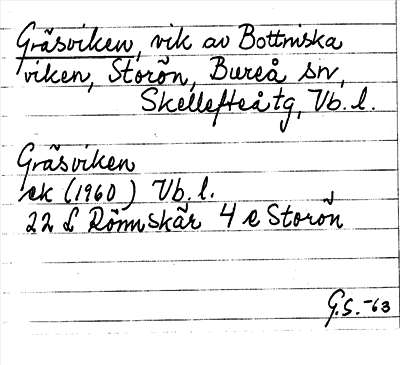 Gräsviken, vik av Bottniska
viken, Storön, Bureå sn,
Skellefteå tg, Vb. l.
Gräsviken
ek (1960) Vb. l.
22 L Rönnskär 4 e Storön
G.S. -63